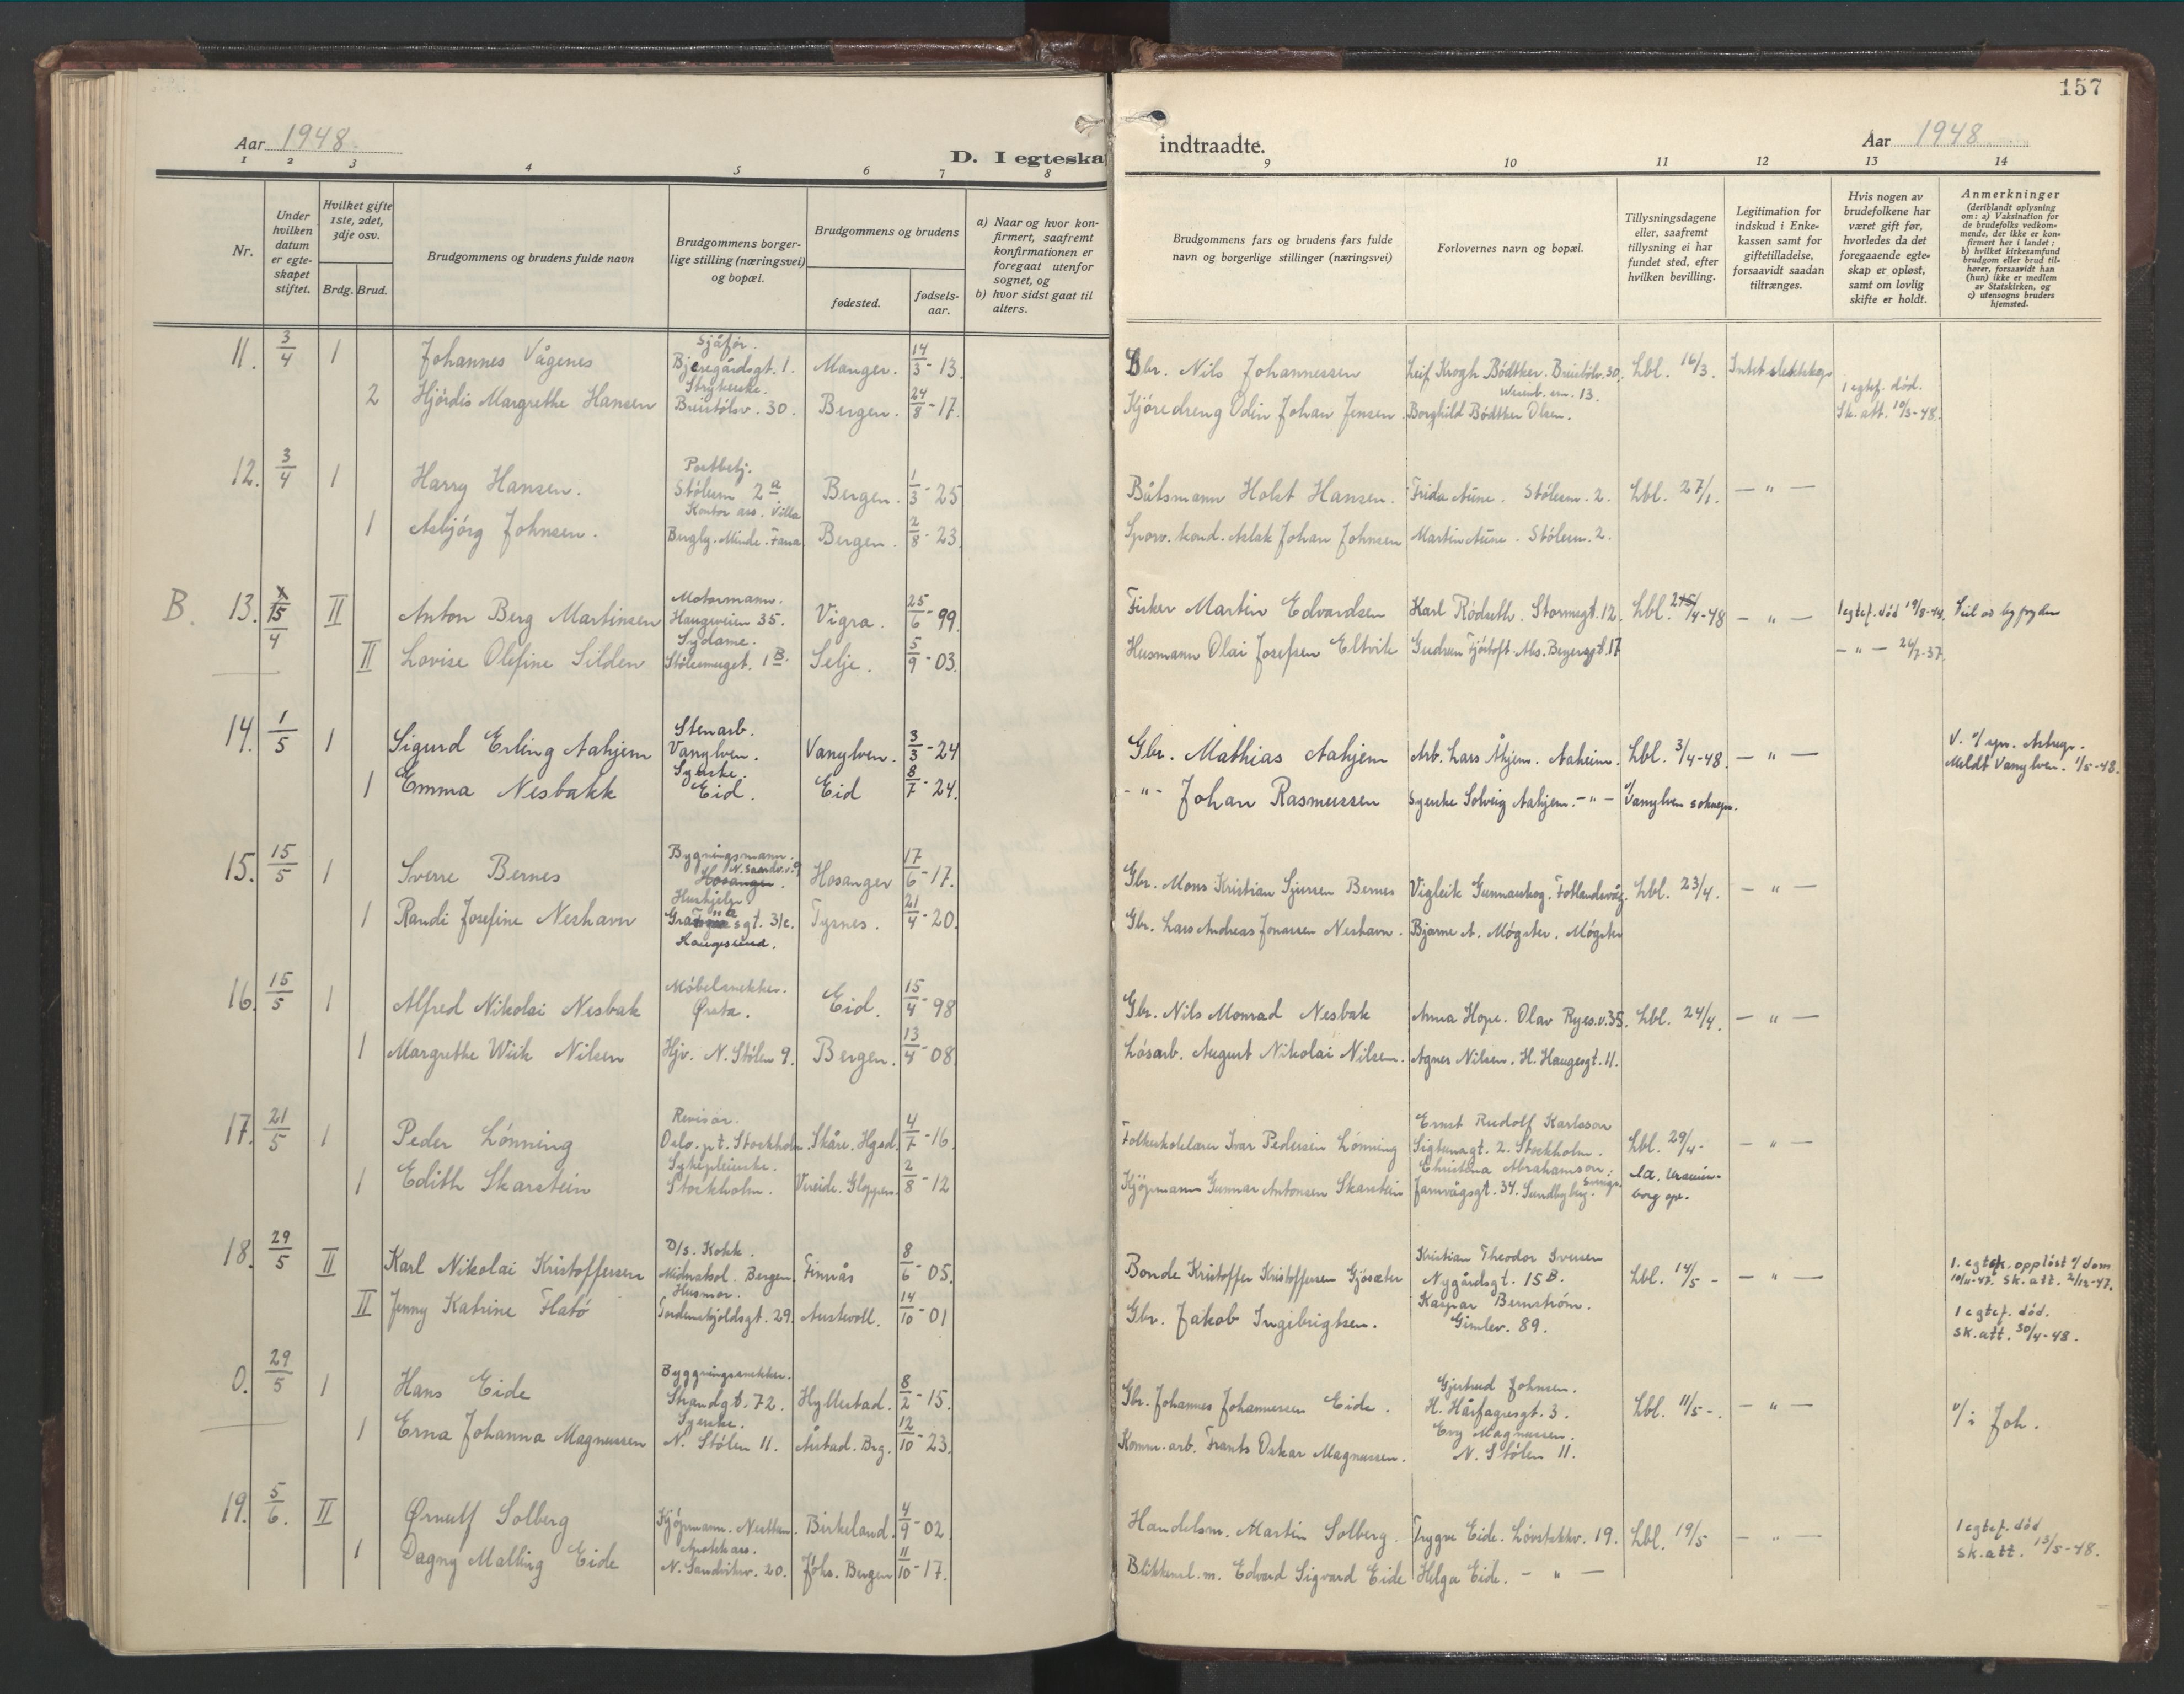 157
Aar 1948.
D. I egteska
indtraadte.
Aar 1948
1 2 3 4 5 6 7 8 9 10 11 12 13 14
Nr.
Under hvilken datum er egteskapet stiftet.
Hvilket gifte 1ste, 2det, 3dje osv.
Brdg. Brud.
Brudgommens og brudens fulde navn
Brudgommens borgerlige stilling (næringsvei) og bopæl.
Brudgommens og brudens
fødested.
fødselsaar.
a) Naar og hvor konfirmert, saafremt konfirmationen er foregaat utenfor sognet, og
b) hvor sidst gaat til alters.
Brudgommens fars og brudens fars fulde navn og borgerlige stillinger (næringsvei)
Forlovernes navn og bopæl.
Tillysningsdagene eller, saafremt tillysning ei har fundet sted, efter hvilken bevilling.
Legitimation for indskud i Enkekassen samt for giftetilladelse, forsaavidt saadan tiltrænges.
Hvis nogen av brudefolkene har været gift før, hvorledes da det foregaaende egteskap er opløst, samt om lovlig skifte er holdt.
Anmerkninger
(deriblandt oplysning om: a) Vaksination for de brudefolks vedkommende, der ikke er konfirmert her i landet; b) hvilket kirkesamfund brudgom eller brud tilhører, forsaavidt han (hun) ikke er medlem av Statskirken, og c) utensogns bruders hjemsted.
11. 3/4 1 Johannes Vågenes Sjåfør. Bjeregårdsgt. 1. Manger. 14/3-13. Gbr. Nils Johannessen Leif Krogh Bødtker. Breistølsv. 30. Lbl. 16/3. Intet slektskap
2 Hjördis Margrethe Hansen Strykerske. Breistølsv. 30. Bergen. 24/8-17. Kjöredreng Odin Johan Jensen. Borghild Bødtker Olsen. 1 egtef. död. Sk. att. 10/3-48.
12. 3/4 1 Harry Hansen. Postbetj. Stölem 2a Bergen. 1/3-25 Båtsmann Holst Hansen. Frida Aune. Stölem. 2. Lbl. 27/1. — " —
1 Asbjörg Johnsen. Kontor ass. Villa Bergly. Minde. Fana Bergen. 2/8-23. Sporv. kond. Aslak Johan Johnsen Martin Aune. Stölem. 2.
B. 13. 15/4 II Anton Berg Martinsen Motormann. Haugeveien 35. Vigra. 25/6-99. Fisker Martin Edvardsen Karl Rödseth. Stormsgt. 12. Lbl. /4-48 — " — 1 egtef. död 19/8-44.
II Lovise Olefine Silden Sydame. Stölesmuget. 1B. Selje. 5/9-03. Husmann Olai Josefsen Eltvik Gudrun Fjörtoft. 17 — " — 24/7-37.
14. 1/5 1 Sigurd Erling Aahjem Stenarb. Vanylven. Vanylven. 3/3-24 Gbr. Mathias Aahjem Arb. Lars Åhjem. Aaheim. Lbl. 3/4-48. — " — Meldt Vanylven. 1/5-48.
1 Emma Nesbakk Syerske. Eid. Eid 8/7-24. - " - Johan Rasmussen Syerske Solveig Aahjem. - " - Vanylven sokn.
15. 15/5 1 Sverre Bernes Bygningsmann. N. Sandv.v. 9 Hosanger. Hosanger 17/6-17. Gbr. Mons Kristian Sjursen Bernes Vigleik Gunnarskog. Fotlandsvåg. Lbl. 23/4. — " —
1 Randi Josefine Neshavn Hushjelp. sgt. 31c. Haugesund. Tysnes. 21/4-20. Gbr. Lars Andreas Jonassen Neshavn. Bjarne A. Møgster. Møgster
16. 15/5 1 Alfred Nikolai Nesbak Möbelsnekker. Ørsta. Eid. 15/4-98 Gbr. Nils Monrad Nesbak Anna Hope. Olav Ryes.v. 35. Lbl. 24/4. — " —
1 Margrethe Wiik Nilsen Hjv. N. Stölen 9. Bergen. 13/4-08. Lösarb. August Nikolai Nilsen. Agnes Nilsen. H. Haugesgt. 11.
17. 21/5 1 Peder Lönning Revisor. Oslo. p.t. Stockholm. Skåre. Hgsd. 4/7-16. Folkeskolelærer Ivar Pedersen Lönning Ernst Rudolf Karlsson Sigtunagt. 2. Stockholm. Lbl. 29/4- — " —
1 Edith Skarstein Sykepleierske. Stockholm. Vereide. Gloppen. 2/8-12 Kjöpmann Gunnar Antonsen Skarstein Christina Abrahamson. Järnvägsgt. 34. Sundbyberg. Sverige.
18. 29/5 II Karl Nikolai Kristoffersen D/s. Kokk. Midnatsol. Bergen. Finnås 8/6-05. Bonde Kristoffer Kristoffersen Gjösæter Kristian Theodor Iversen Nygårdsgt. 15B. Lbl. 14/5- — " — 1. egtesk. opplöst v/dom 10/11-47. Sk. att. 2/12-47.
II Jenny Katrine Flatö Husmor. Tordenskjoldsgt. 29. Austevoll. 14/10-01 Gbr. Jakob Ingebrigtsen. Kaspar Bernström. Gimlev. 89. 1 egtef. död. Sk. att. 30/4-48.
0. 29/5 1 Hans Eide Byggningssnekker. Strandgt. 72. Hyllestad. 8/2-15. Gbr. Johannes Johannessen Eide. Gjertrud Johnsen. H. Hårfagresgt. 3. Lbl. 11/5-. — " — v/i Joh.
1 Erna Johanna Magnussen Syerske. N. Stölen 11. Årstad. Brg. 12/10-23. Komm. arb. Frants Oskar Magnussen. Evy Magnussen. N. Stölen 11.
19. 5/6. II Ørnulf Solberg Kjöpmann. Nesttun. Birkeland. 4/9-02. Handelsm. Martin Solberg. Trygve Eide. Løvstakkv. 19. Lbl. 19/5 — " — 1 egtef. död Sk. att. 13/5-48.
1 Dagny Malling Eide N. Sandviksv. 20. Johs. Bergen 11/10-17. Blikkensl. m. Edvard Sigvard Eide Helga Eide. — " —